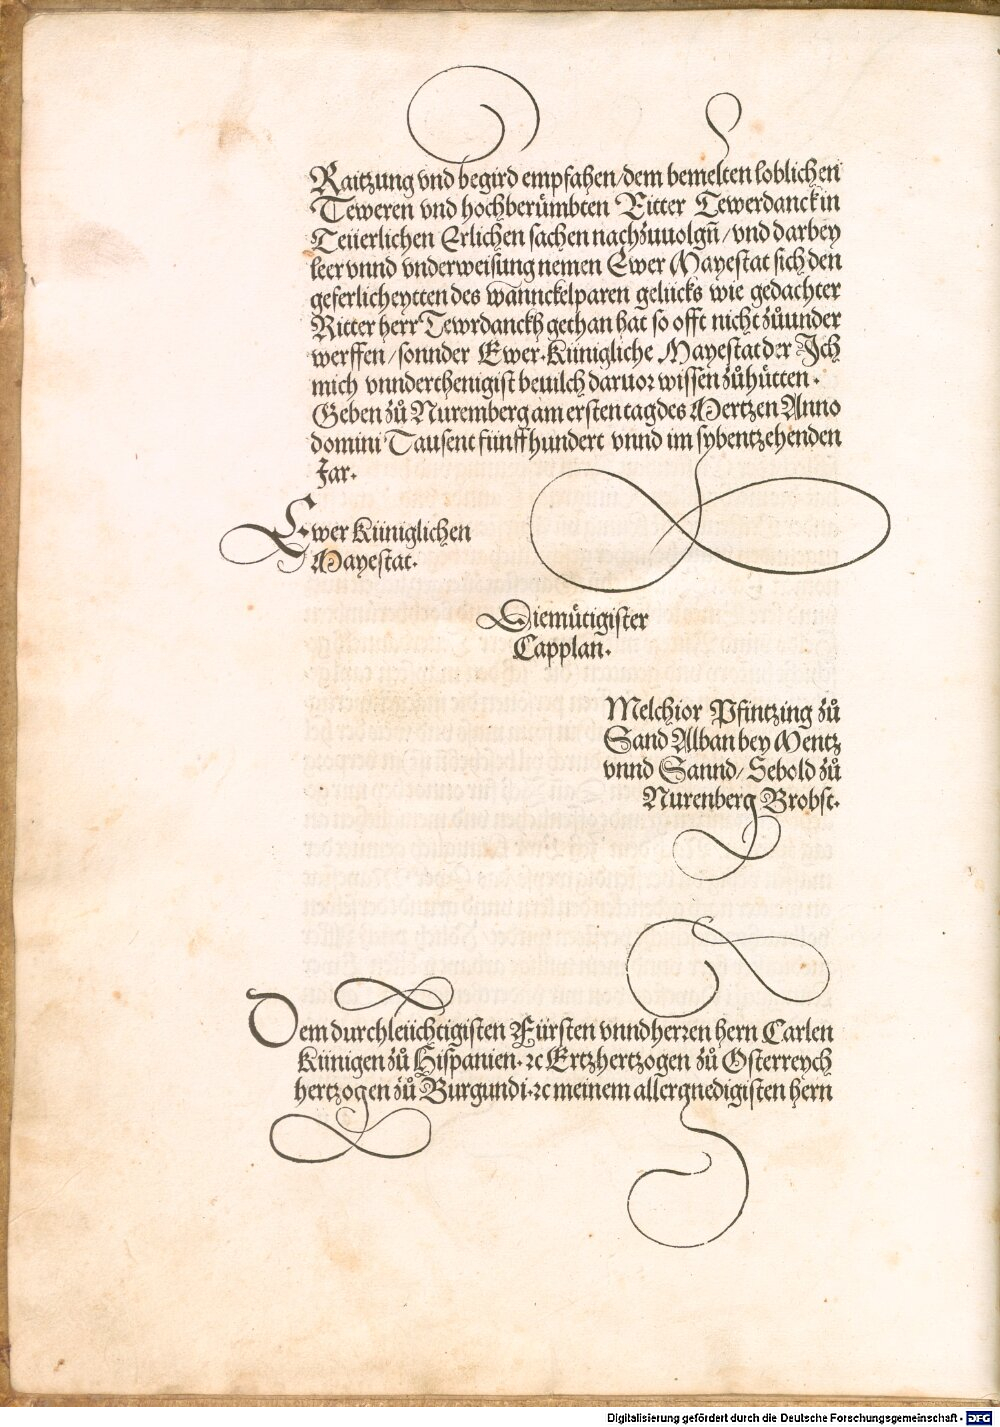 Raitzung vnd begird empfahen/dem bemelten loblichen
Teweren vnd hochberümbten Ritter Tewerdanck in
Teüerlichen Erlichen sachen nachzuuolgñ/vnd darbey
leer vnnd vnderweisung nemen Ewer Mayestat sich den
geferlicheytten des wannckelparen gelücks wie gedachter
Ritter herr Tewrdanckh gethan hat so offt nicht zůunder
werffen/sonnder Ewer Künigliche Mayestat der Ich
mich vnnderthenigist beuilch daruor wissen zůhütten.
Geben zů Nuremberg am ersten tag des Mertzen Anno
domini Tausent fünffhundert vnnd im sybentzehenden
Jar.
Ewer Küniglichen
Mayestat.
Diemütigister
Capplan.
Melchior Pfintzing zů
Sand Alban bey Mentz
vnnd Sannd/Sebold zů
Nurenberg Brobst.
Dem durchleüchtigisten Fürsten vnnd herren hern Carlen
Künigen zů Hispanien.ꝛc Ertzhertzogen zů Osterreych
hertzogen zů Burgundi.ꝛc meinem allergnedigisten hern
Digitalisierung gefördert durch die Deutsche Forschungsgemeinschaft - DFG